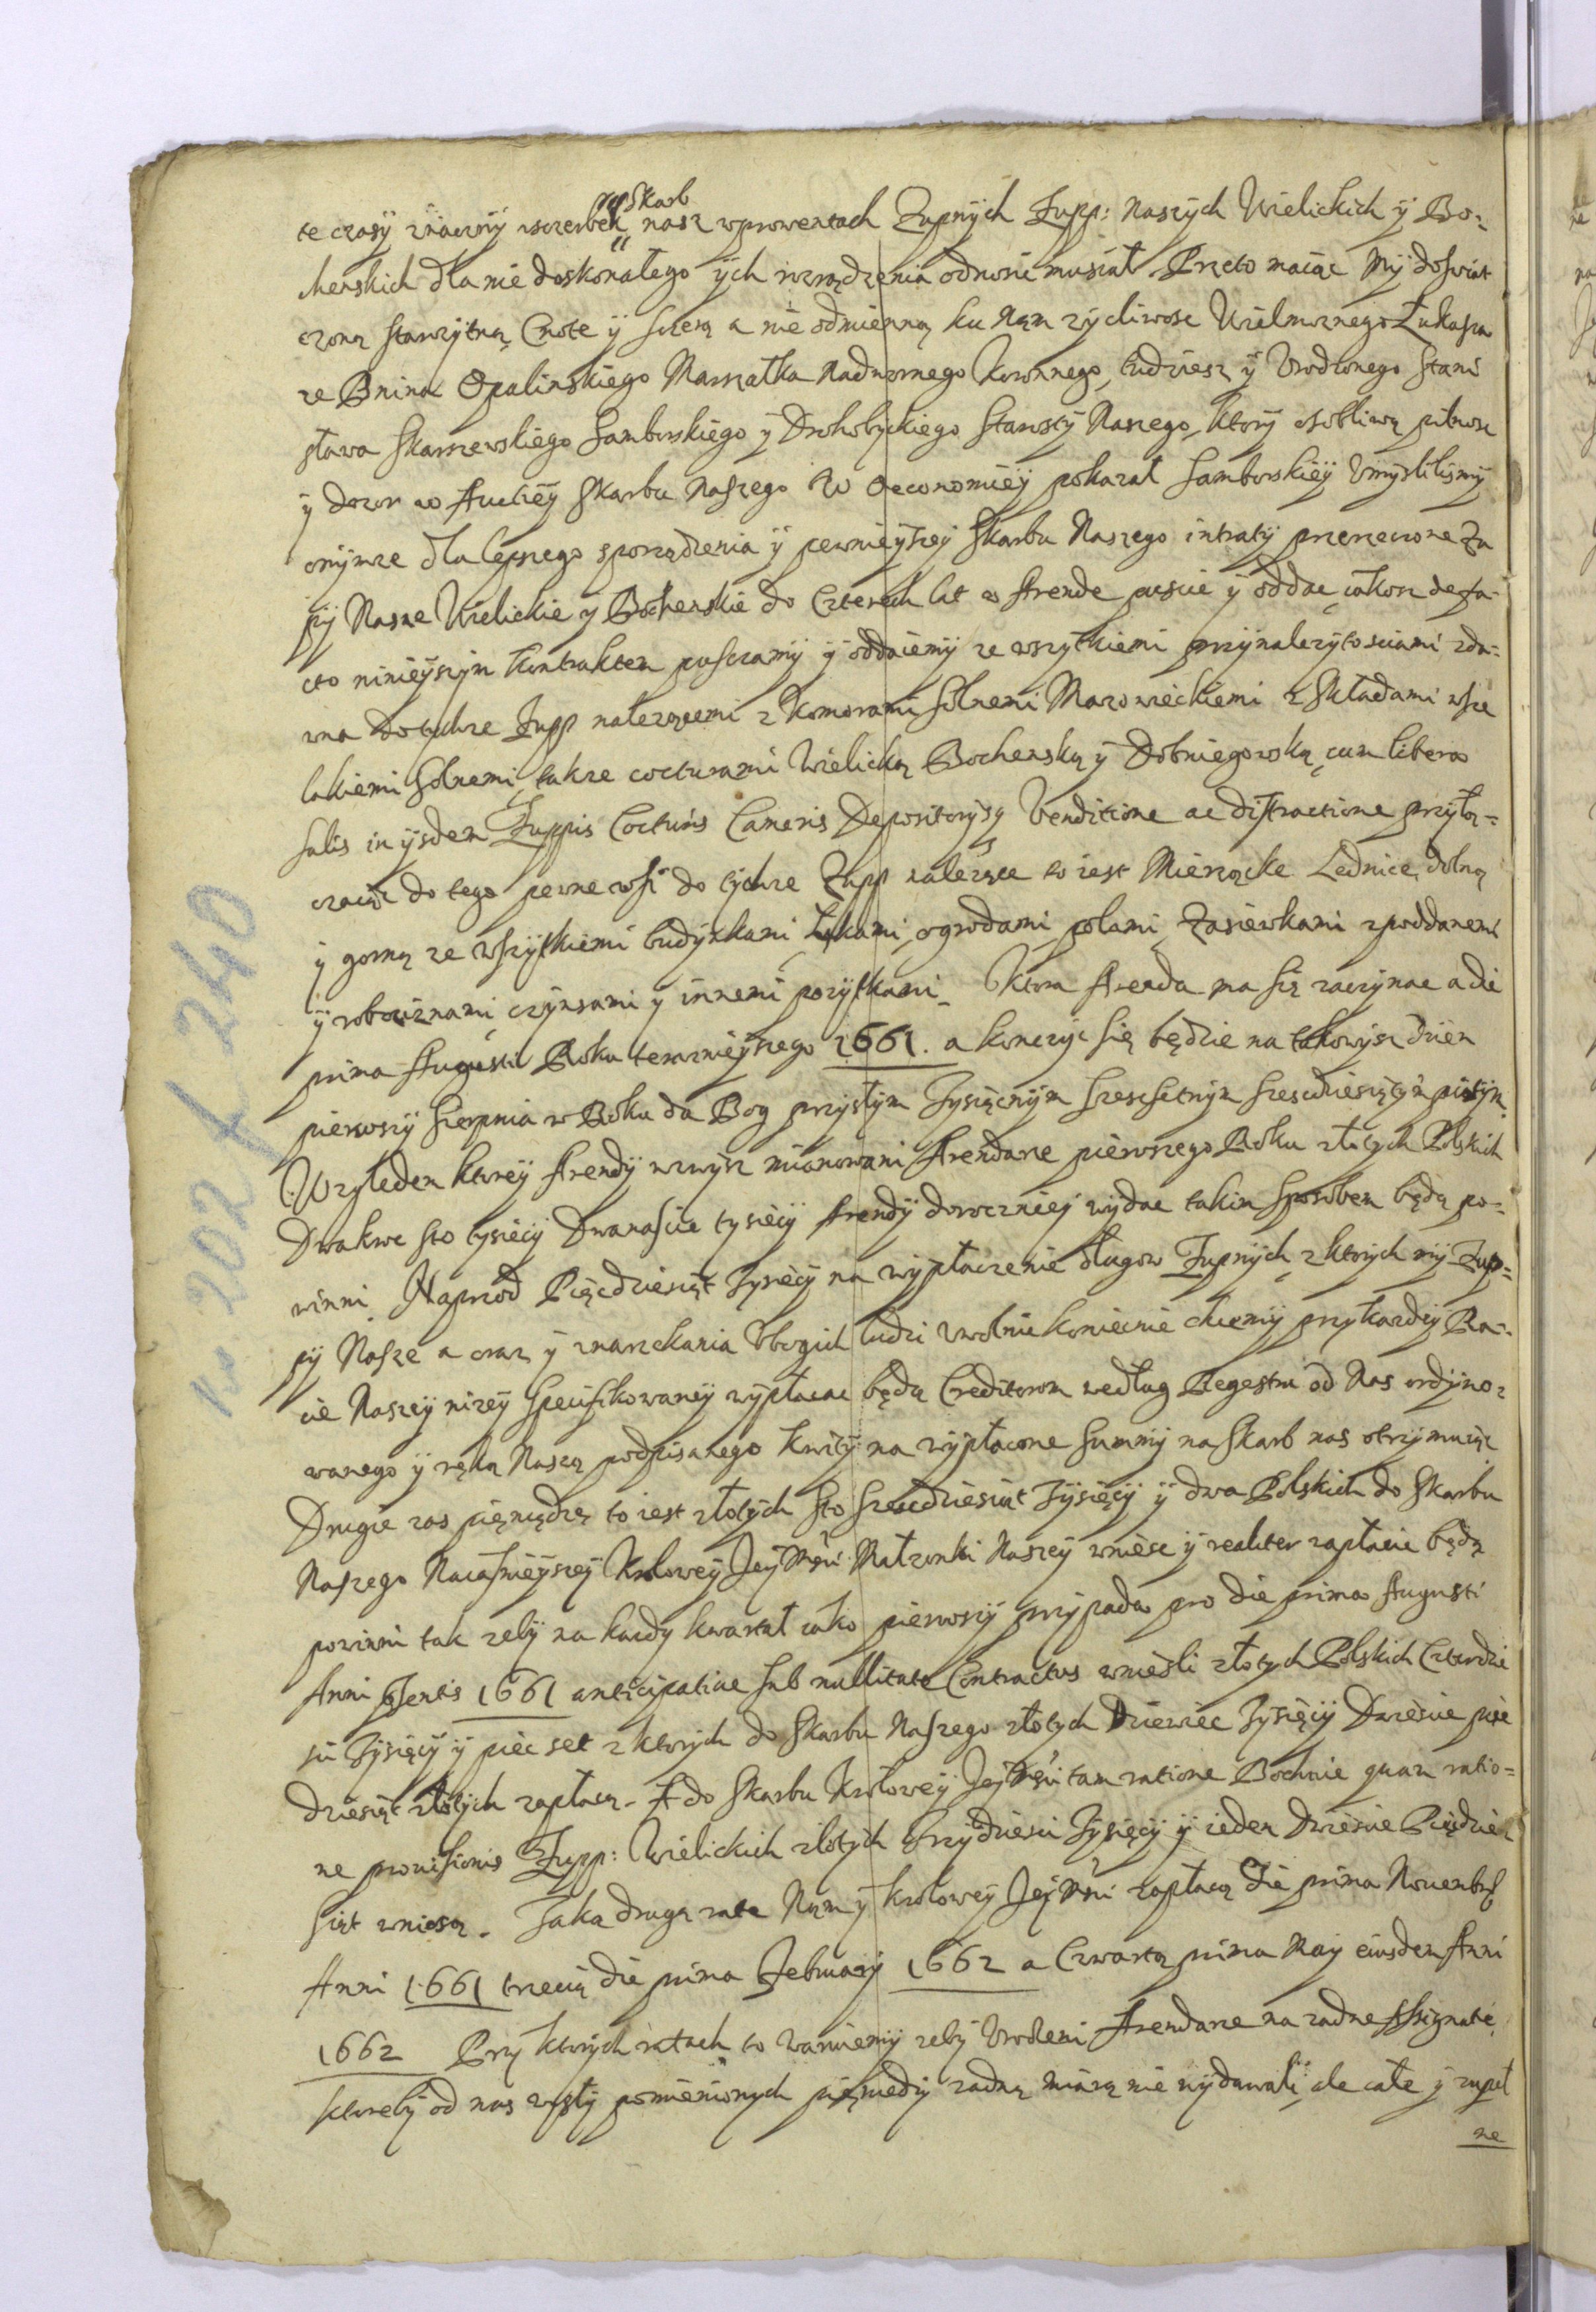 te czasy znaczny vsczerbek Skarb nasz wprowentach Zupnych Zupp: naszych Wielickich ÿ Bo:
chenskich dla nie doskonałego ÿch rozrządzenia odnosic musiał. Przeto maiąc My doswiat
czoną starożytną Cnote ÿ sczerą a nie odmienną ku Nam zÿcliwosc Wielmoznego Łukasza
ze Bnina Opalinskiego Marszałka Nadwornego Koronnego, tudziesz ÿ Vrodzonego Stani
sława Skarszewskiego Samborskiego ÿ Drohobyckiego Starosty Naszego, ktory osobliwą pilnosc
ÿ dozor w Aucieÿ Skarbu Naszego w Oeconomieÿ pokazał Samborskieÿ Vmyslilismÿ
onÿmze dla lepszego sporządzenia ÿ pewnieÿszeÿ Skarbu Naszego intratÿ przerzeczone Zu
pÿ Nasze Wielickie ÿ Bochenskie do Czterech lat w Arende puscic ÿ oddac, iakosz de fa-
cto ninieÿszÿm Kontraktem pusczamÿ ÿ oddaiemÿ ze wszytkiemi przÿnalezÿtosciami zda-
wna do tychze Zupp nalezącemi z Komorami Solnemi Mazowieckiemi z Składami wsze
lakiemi Solnemi, takze cocturami Wielicką Bochenską ÿ Dobniegowską, cum libera
salis in ÿsdem Zuppis Cocturis Cameris Depositorÿsq Venditione ac distractione przÿłą-
czaiąc do tego pewne wsi do tÿchze Zupp nalezące to iest Mierzączke Lednice, dolną
ÿ gorną ze wszÿtkiemi budÿnkami, Łąkami, ogrodami, polami, Zasiewkami zpoddanemi
ÿ robociznami, czÿnszami ÿ innemi pozÿtkami. Ktora Arenda ma się zaczÿnac a die
prima Augusti Roku terazniejszego 1661. a konczÿc się będzie na takowÿsz dzien
pierwszÿ Sierpnia w Roku da Bog przÿszłÿm Tysiącznÿm szescsetnÿm szescdziesiątÿm piątÿm.
Względem ktoreÿ Arendÿ wzwÿsz mianowani Arendarze pierwszego Roku złotÿch Polskich
Dwakroc sto tysięcÿ Dwanascie tysięcÿ Arendÿ doroczneÿ wÿdac takim sposobem będą po-
winni. Naprzod Pięcdziesiąt Tysięcÿ na wÿpłaczenie długow Zupnÿch, z ktorÿch mÿ Zup=
pÿ Nasze a oraz ÿ znarzekania Vbogich ludzi vwolnic koniecznie chcemÿ przÿ kazdeÿ Ra-
cie Naszeÿ nizeÿ specifikowaneÿ wÿpłacac będą Creditorom według Regestru od Nas ordÿno-
wanego ÿ ręką Naszą podpisanego kwitÿ na wÿpłacone summÿ na Skarb nas otrzÿmuiąc
Drugie zas pieniądze to iest złotÿch sto szescdziesiąt Tÿsięcÿ ÿ dwa Polskich do Skarbu
Naszego Naiasnieÿszeÿ Kroloweÿ Jeÿ Mści Małzonki Naszeÿ wniesc ÿ realiter zapłacic będą
powinni tak zebÿ na kazdy kwartał iako pierwszÿ przÿpada pro die prima Augusti
Anni psentis 1661 anticipative sub nullitate Contractus wniesli złotÿch Polskich Czterdzie
sci Tÿsięcÿ ÿ pięc set z ktorÿch do Skarbu Naszego złotÿch Dziewiec Tÿsięcÿ Dwiescie pięc
dziesiąt złotÿch zapłacą. A do Skarbu Kroloweÿ Jeÿ Mści tam ratione Bochnie quam ratio=
ne prouisionis Zupp: Wielickich złotÿch Trzÿdziesci Tÿsięcÿ ÿ ieden Dwiescie Pięcdzie
siąt wniosą. Taką drugą rate Nam ÿ Kroloweÿ Jeÿ Mści zapłacą Die prima Nouembris
Anni 1661 trzecią die prima Februarÿ 1662 a Czwartą prima Maÿ eiusdem Anni
1662 Przÿ ktorÿch ratach to waruiemÿ zebÿ Vrodzeni Arendarze na zadne Assignatie
ktorebÿ od nas wÿszłÿ pomienionych pieniedzÿ zadną miarą nie wÿdawali, ale całe ÿ zupeł
ne
No 202 f 240